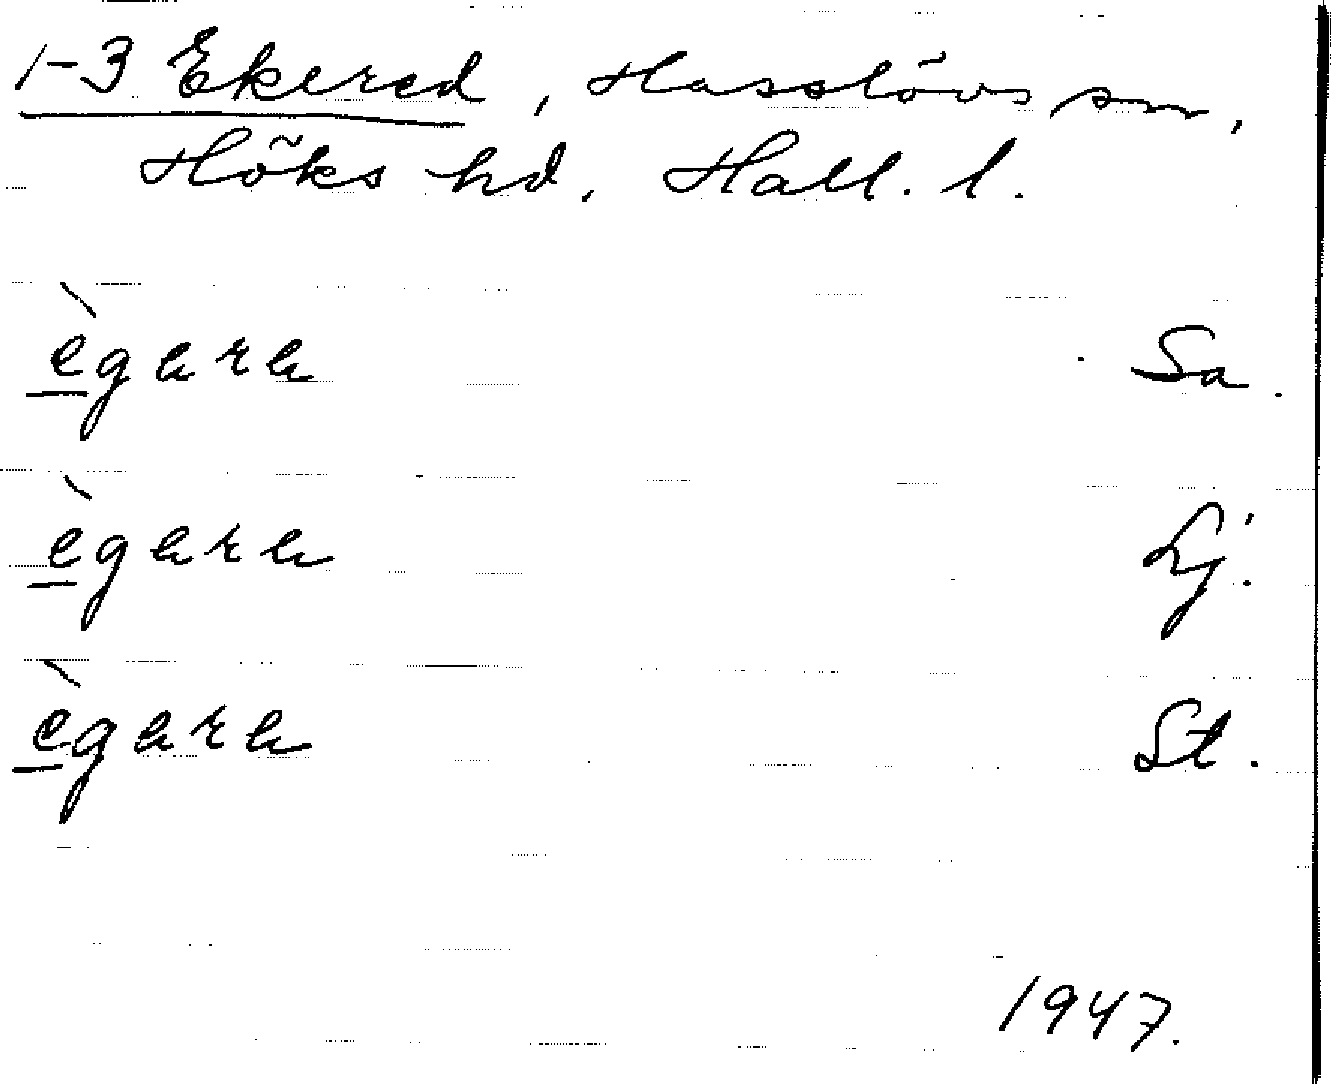 1-3 Ekered, Hasslövs sn,
Höks hd. Hall. l.
ègara Sa.
ègara Lj.
ègara St.
1947.